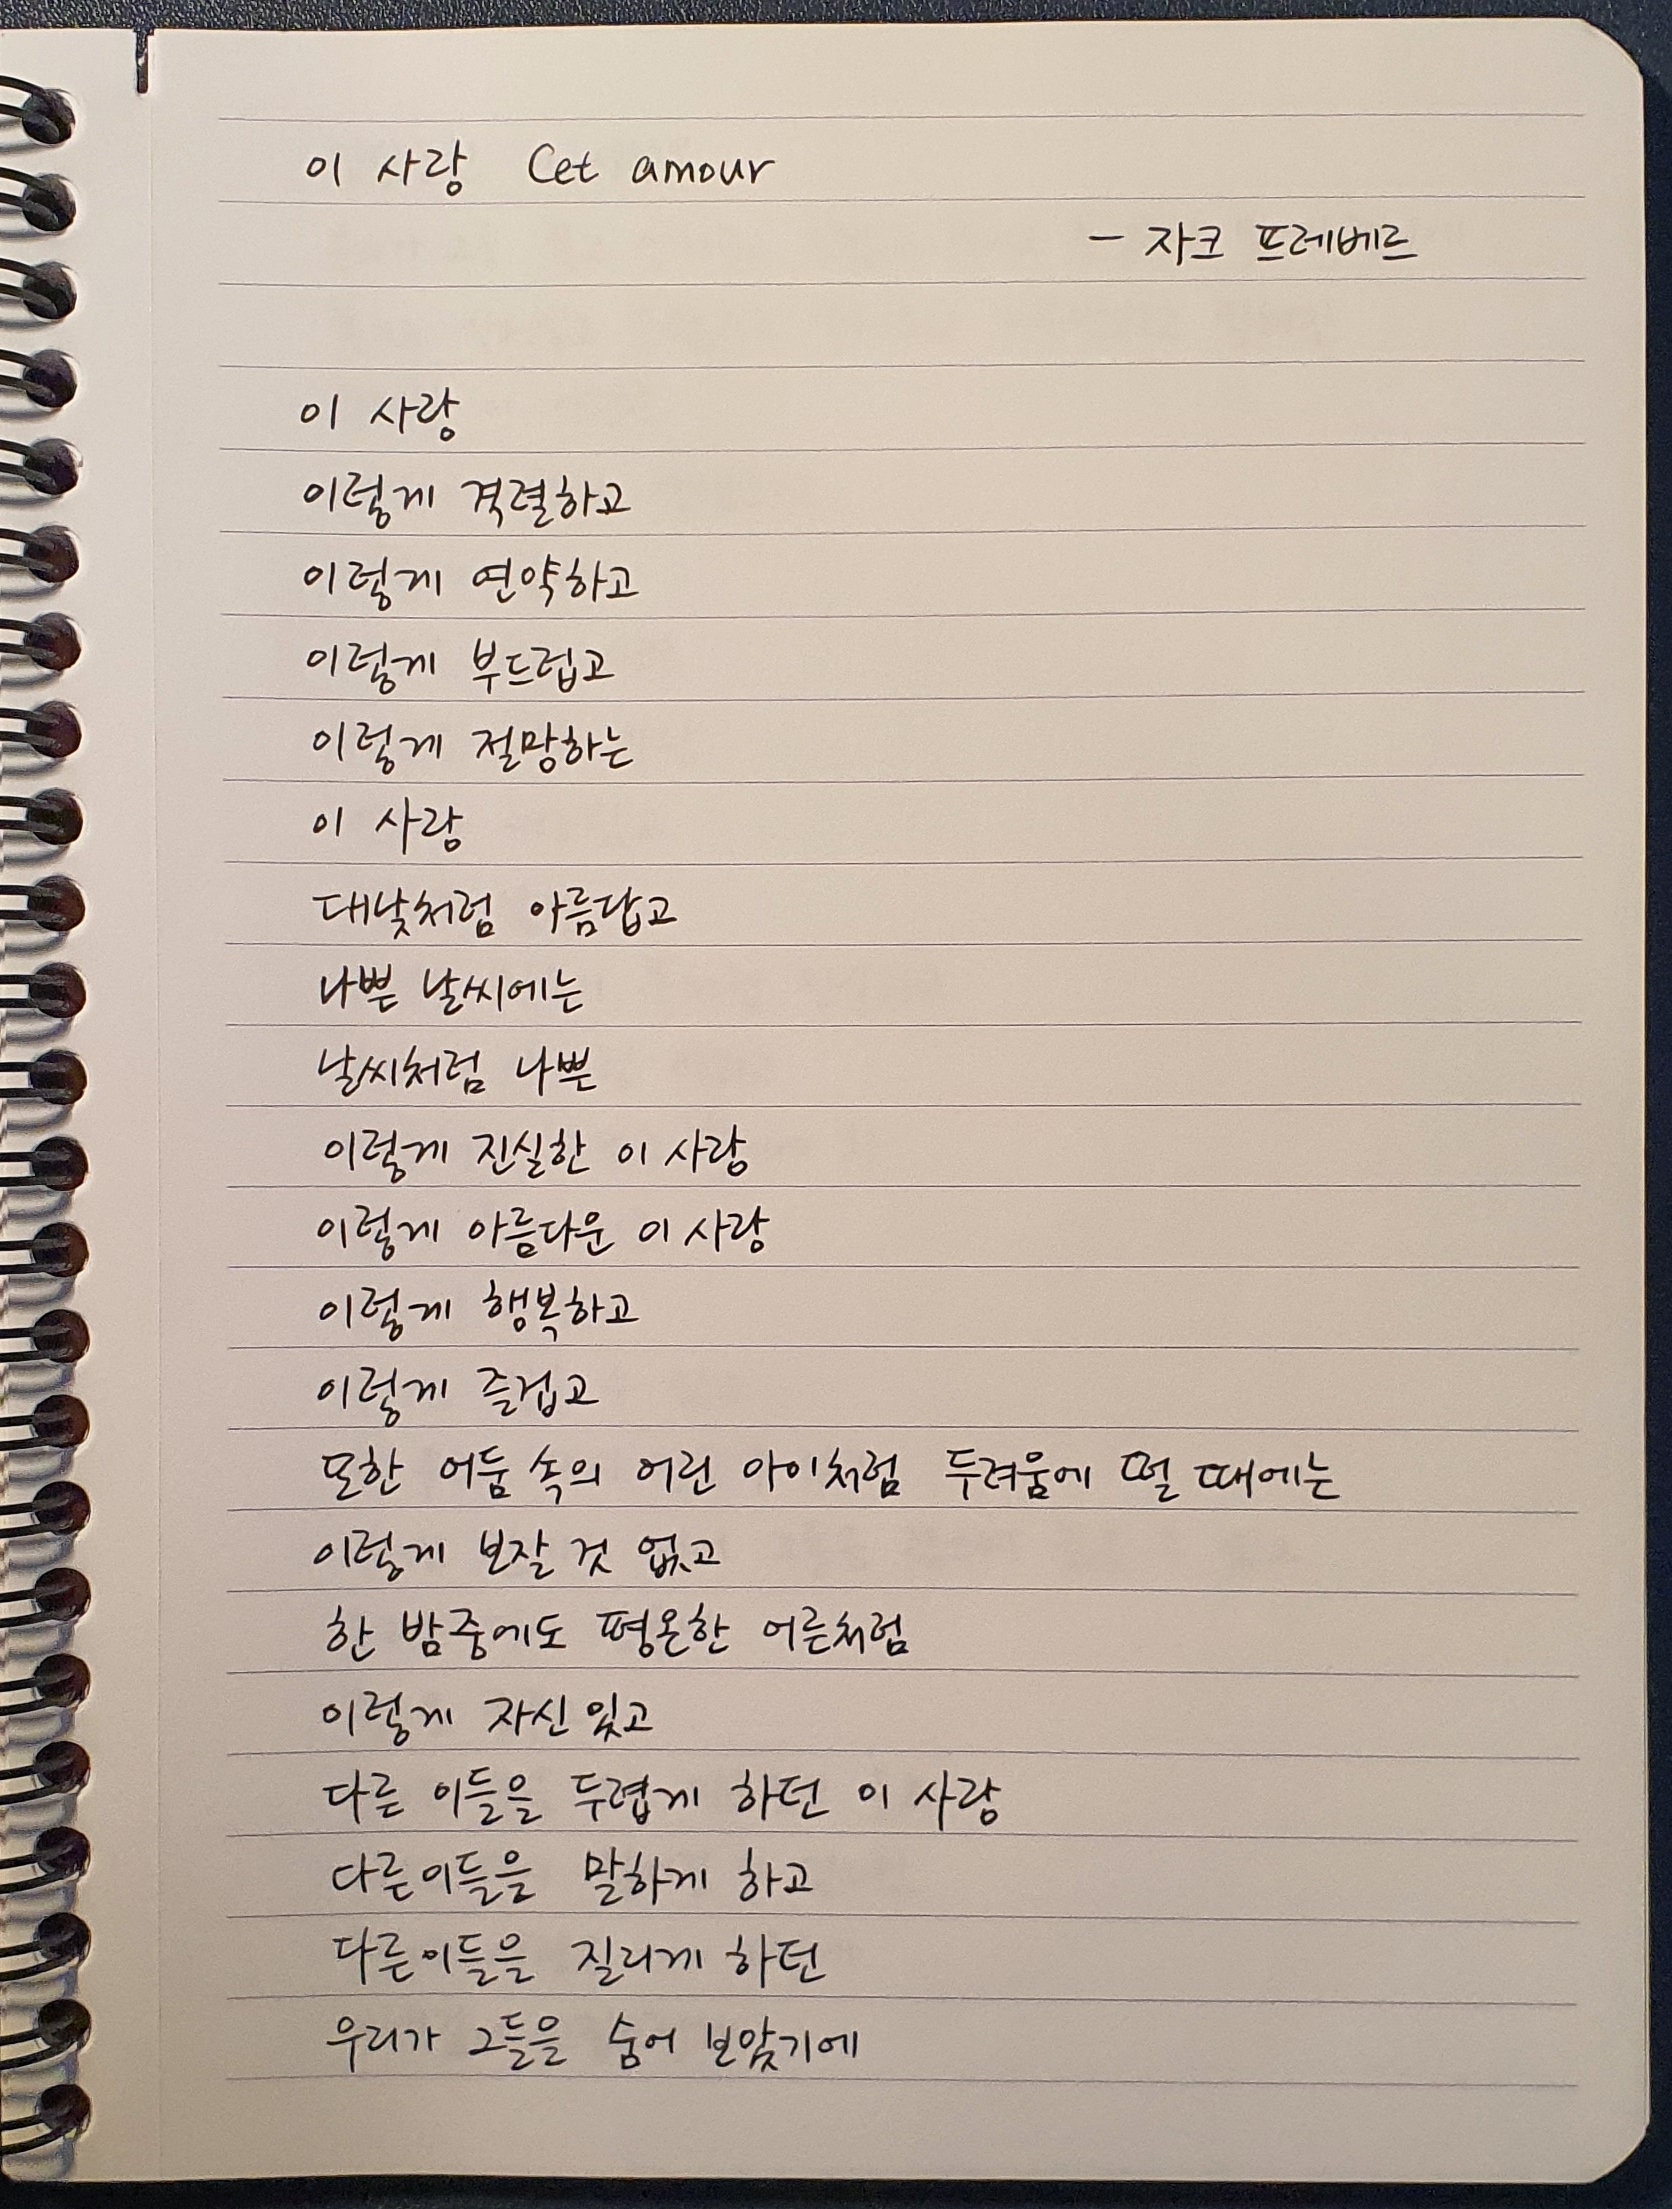 이 사랑 Cet amour
- 자크 프레베르
이 사랑
이렇게 격렬하고
이렇게 연약하고
이렇게 부드럽고
이렇게 절망하는
이 사랑
대낮처럼 아름답고
나쁜 날씨에는
날씨처럼 나쁜
이렇게 진실한 이 사랑
이렇게 아름다운 이 사랑
이렇게 행복하고
이렇게 즐겁고
또한 어둠 속의 어린 아이처럼 두려움에 떨 때에는
이렇게 보잘 것 없고
한 밤중에도 평온한 어른처럼
이렇게 자신 있고
다른 이들을 두렵게 하던 이 사랑
다른이들을 말하게 하고
다른이들을 질리게 하던
우리가 그들을 숨어 보았기에